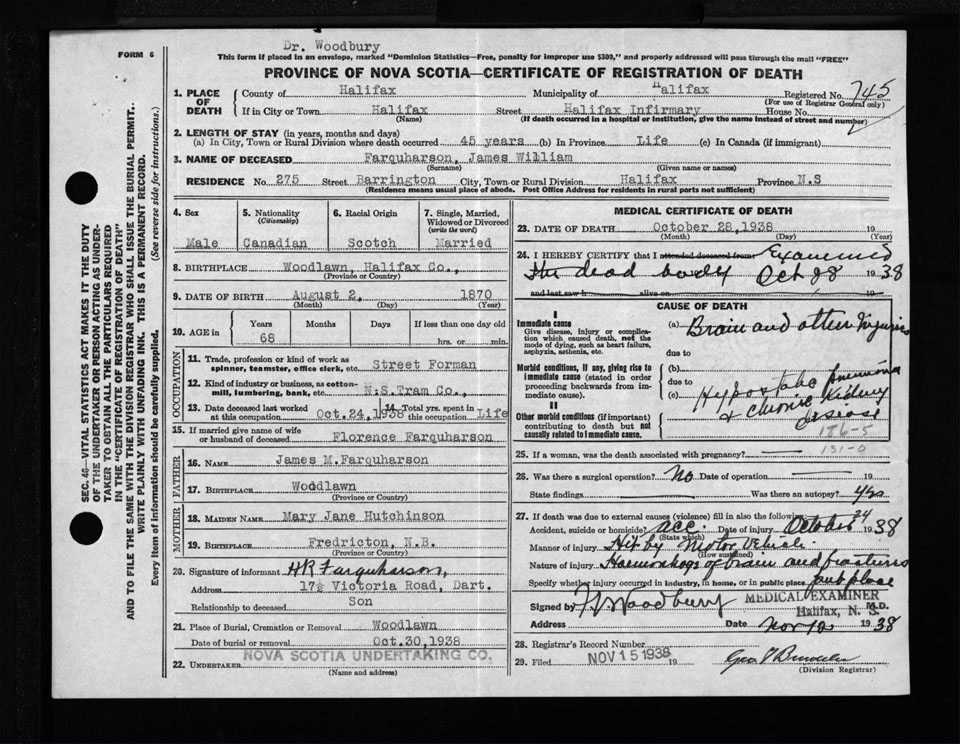 Dr. Woodbury
FORM 6
This form if placed in an envelope, marked "Dominion Statistics—Free, penalty for improper use $300," and properly addressed will pass through the mail "FREE"
PROVINCE OF NOVA SCOTIA—CERTIFICATE OF REGISTRATION OF DEATH
1. PLACE OF DEATH
County of Halifax Municipality of Halifax Registered No. 745
(For use of Registrar General only)
If in City or Town Halifax Street Halifax Infirmary House No.
(Name) (If death occurred in a hospital or institution, give the name instead of street and number)
2. LENGTH OF STAY (in years, months and days)
(a) In City, Town or Rural Division where death occurred 45 years (b) In Province Life (c) In Canada (if immigrant)
3. NAME OF DECEASED Farquharson, James William
(Surname) (Given name or names)
RESIDENCE No. 275 Street Barrington City, Town or Rural Division Halifax Province N.S
(Residence means usual place of abode. Post Office Address for residents in rural parts not sufficient)
4. Sex
Male
5. Nationality
(Citizenship)
Canadian
6. Racial Origin
Scotch
7. Single, Married, Widowed or Divorced
(write the word)
Married
8. BIRTHPLACE Woodlawn, Halifax Co.,
(Province or Country)
9. DATE OF BIRTH August 2, 1870
(Month) (Day) (Year)
10. AGE in
Years Months Days If less than one day old
68 hrs. or min.
OCCUPATION
11. Trade, profession or kind of work as
spinner, teamster, office clerk, etc. Street Forman
12. Kind of industry or business, as cotton-
mill, lumbering, bank, etc. N.S.Tram Co.,
13. Date deceased last worked
at this occupation Oct.24,1938
14. Total yrs. spent in
this occupation Life
15. If married give name of wife
or husband of deceased Florence Farquharson
FATHER
16. NAME James M.Farquharson
17. BIRTHPLACE Woodlawn
(Province or Country)
MOTHER
18. MAIDEN NAME Mary Jane Hutchinson
19. BIRTHPLACE Fredricton, N.B.
(Province or Country)
20. Signature of informant HR Farquharson,
Address 17½ Victoria Road, Dart.
Relationship to deceased Son
21. Place of Burial, Cremation or Removal Woodlawn
Date of burial or removal Oct.30,1938
22. UNDERTAKER NOVA SCOTIA UNDERTAKING CO.
(Name and address)
MEDICAL CERTIFICATE OF DEATH
23. DATE OF DEATH October 28,1938 19
(Month) (Day) (Year)
24. I HEREBY CERTIFY that I attended deceased from Examined
the dead body Oct 28 1938
and last saw h alive on 19
CAUSE OF DEATH
I
Immediate cause
Give disease, injury or complication which caused death, not the mode of dying, such as heart failure, asphyxia, asthenia, etc.
(a) Brain and other Injuries
due to
Morbid conditions, if any, giving rise to immediate cause (stated in order proceeding backwards from immediate cause).
(b)
due to
(c) Hypostatic pneumonia
& chronic Kidney
disease
II
Other morbid conditions (if important) contributing to death but not causally related to immediate cause.
186-5
131-0
25. If a woman, was the death associated with pregnancy?
26. Was there a surgical operation? No Date of operation 19
State findings Was there an autopsy? yes
27. If death was due to external causes (violence) fill in also the following
Accident, suicide or homicide? acc. Date of injury October 24 1938
(State which)
Manner of injury Hit by Motor Vehicle
(How sustained)
Nature of injury Haemorrhage of brain and fractures
Specify whether injury occurred in industry, in home, or in public place pub place
Signed by Woodbury M.D.
MEDICAL EXAMINER
Halifax, N. S.
Address Date Nov 12 1938
28. Registrar's Record Number
29. Filed NOV 15 1938 19
(Division Registrar)
SEC. 46—VITAL STATISTICS ACT MAKES IT THE DUTY
OF THE UNDERTAKER OR PERSON ACTING AS UNDER-
TAKER TO OBTAIN ALL THE PARTICULARS REQUIRED
IN THE "CERTIFICATE OF REGISTRATION OF DEATH"
AND TO FILE THE SAME WITH THE DIVISION REGISTRAR WHO SHALL ISSUE THE BURIAL PERMIT.
WRITE PLAINLY WITH UNFADING INK. THIS IS A PERMANENT RECORD.
Every item of information should be carefully supplied. (See reverse side for instructions.)